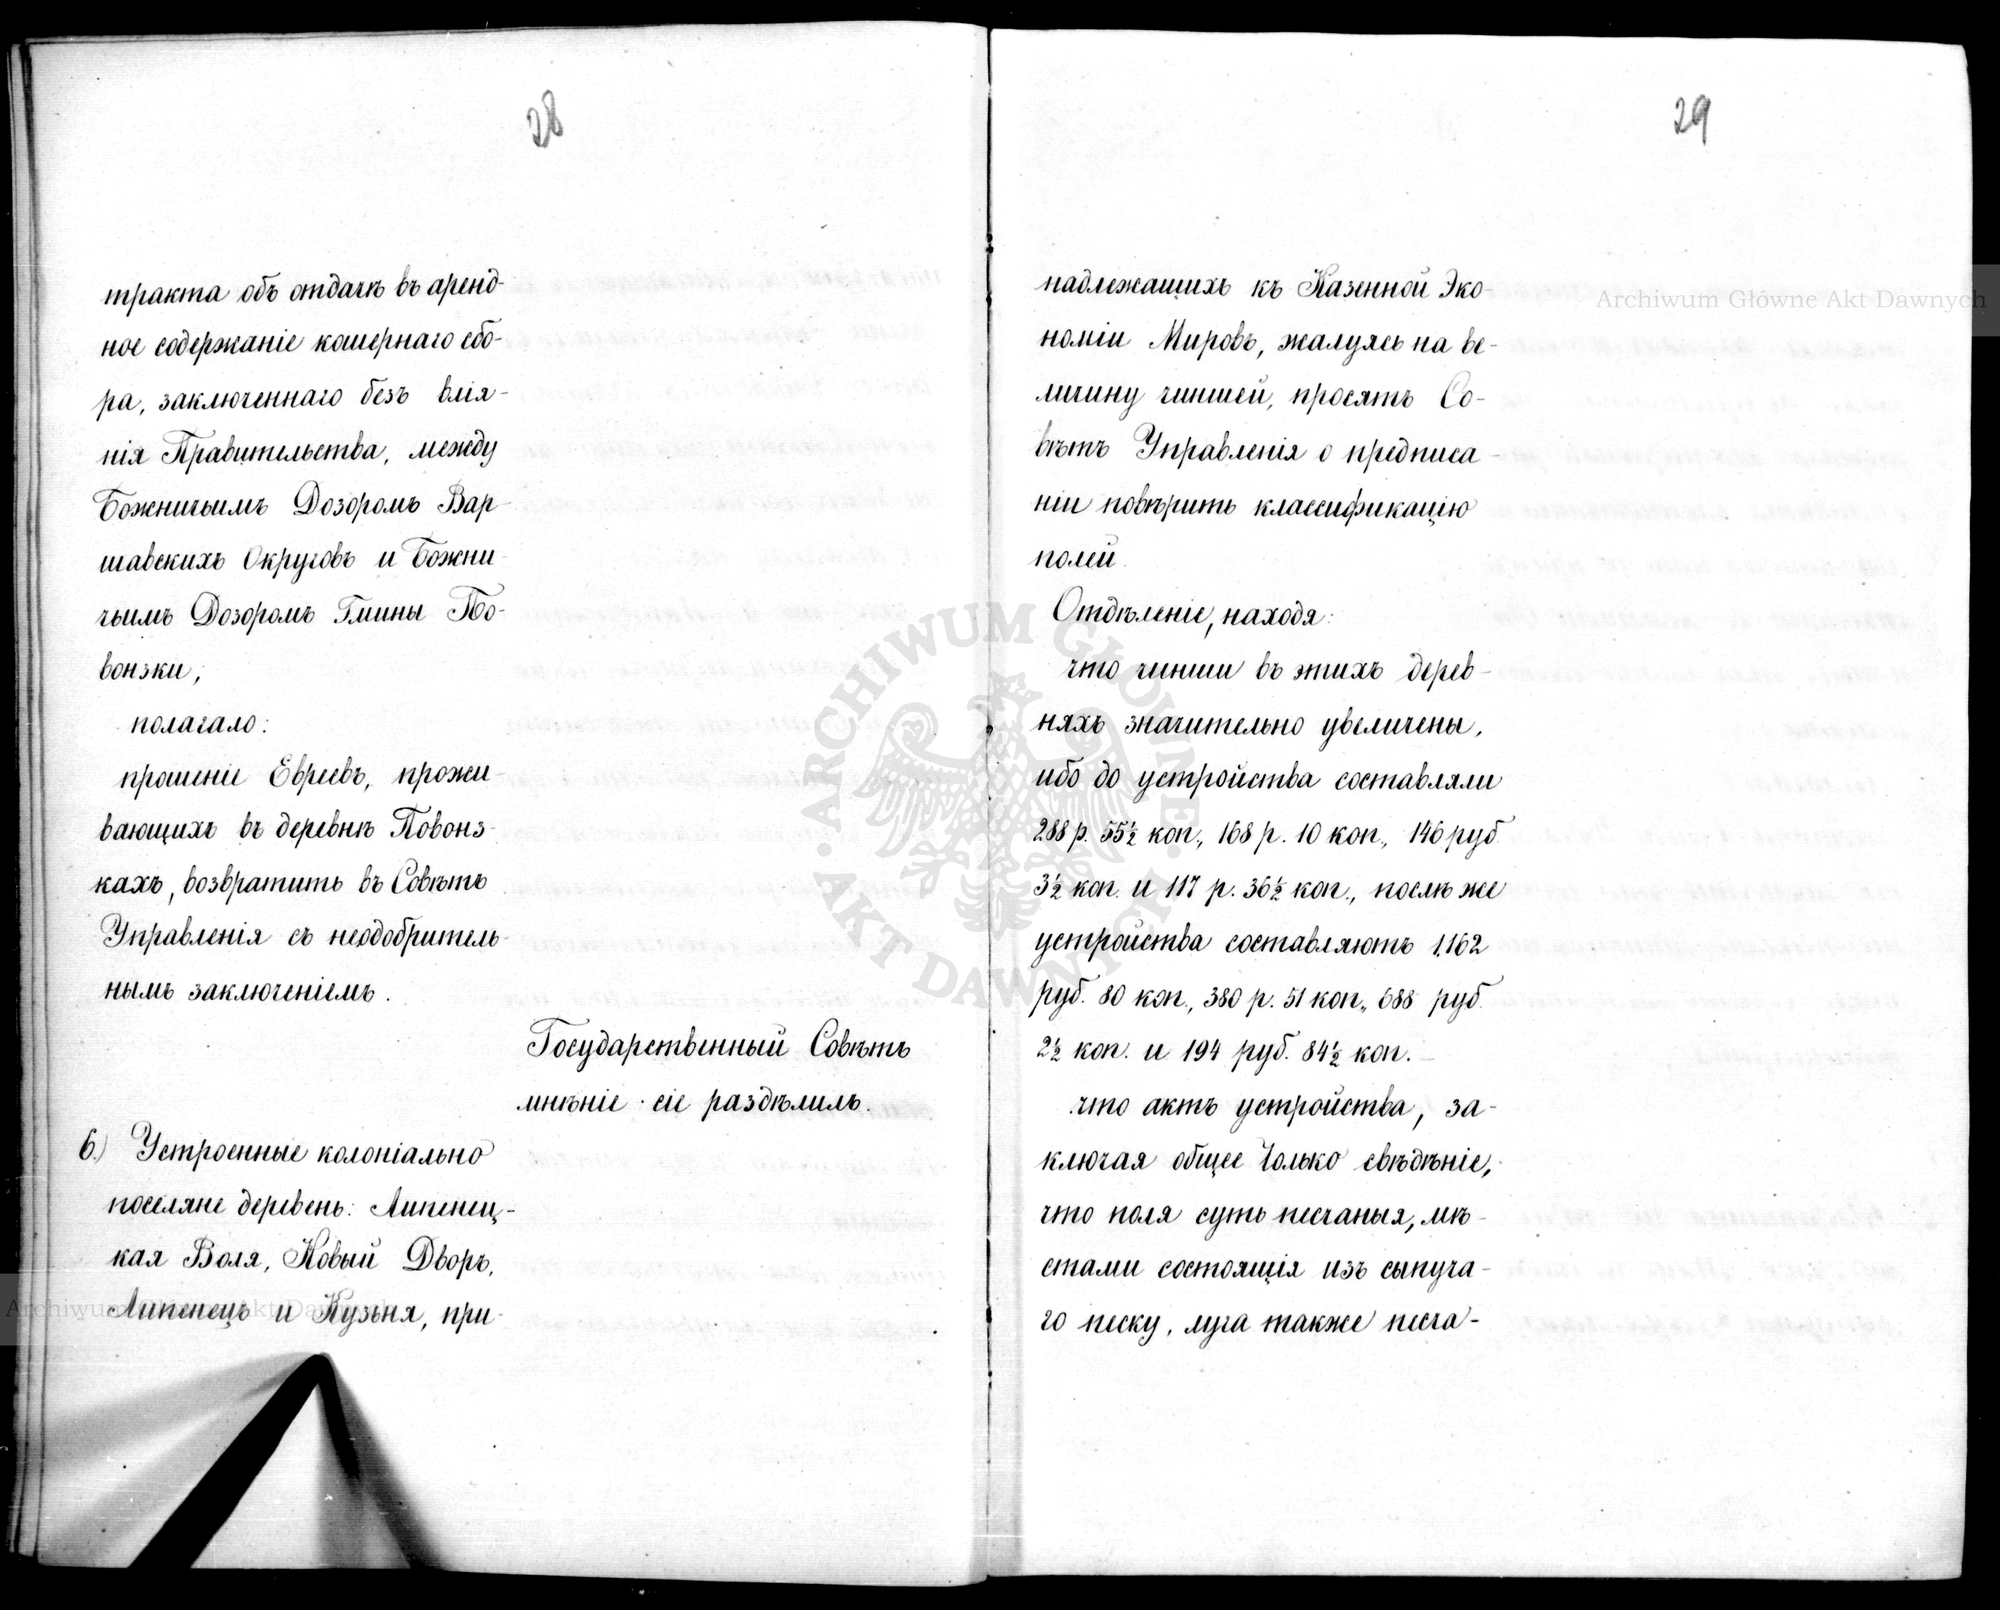 28
тракта объ отдачѣ въ аренд-
ное содержаніе кошернаго сбо-
ра, заключеннаго безъ влія-
нія Правительства, между
Божничьимъ Дозоромъ Вар-
шавскихъ Округовъ и Божни-
чьимъ Дозоромъ Гмины По-
вонзки,
полагало:
прошеніе Евреевъ, прожи
вающихъ въ деревнѣ Повонз-
кахъ, возвратить въ Совѣтъ
Управленія съ неодобритель-
нымъ заключеніемъ.
Государственный Совѣтъ
мнѣніе сіе раздѣлилъ.
6.) Устроенные колоніально
поселяне деревень: Липенец-
кая Воля, Новый Дворъ,
Липенецъ и Кузьня, при-
29
надлежащихъ къ Казенной Эко-
номіи Мировъ, жалуясь на ве-
личину чиншей, просятъ Со-
вѣтъ Управленія о предписа-
ніи повѣрить классификацію
полей.
Отдѣленіе, находя:
что чинши въ этихъ дерев-
няхъ значительно увеличены,
ибо до устройства составляли
288 р. 55½ коп., 168 р. 10 коп., 146 руб.
3½ коп. и 117 р. 36½ коп., послѣ же
устройства составляютъ 1,162
руб. 80 коп., 380 р. 51 коп., 688 руб.
2½ коп. и 194 руб. 84½ коп.
что актъ устройства, за-
ключая общее только свѣдѣніе,
что поля суть песчаныя, мѣ-
стами состоящія изъ сыпуча-
го песку, луга также песча-
Archiwum Główne Akt Dawnych
Archiwum Główne Akt Dawnych
ARCHIWUM GŁÓWNE AKT DAWNYCH